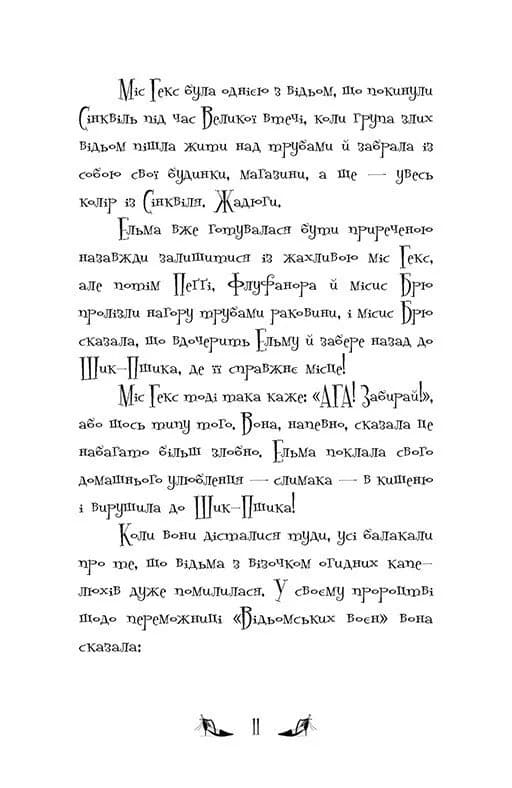 Міс Гекс була однією з відьом, що покинули
Сінквіль під час Великої втечі, коли група злих
відьом пішла жити над трубами й забрала із
собою свої будинки, магазини, а ще — увесь
колір із Сінквіля. Жадюги.
Ельма вже готувалася бути приреченою
назавжди залишитися із жахливою міс Гекс,
але потім Пеґґі, Флуфанора й місис Брю
пролізли нагору трубами раковини, і місис Брю
сказала, що вдочерить Ельму й забере назад до
Шик-Пшика, де її справжнє місце!
Міс Гекс тоді така каже: «АГА! Забирай!»,
або щось типу того. Вона, напевно, сказала це
набагато більш злобно. Ельма поклала свого
домашнього улюбленця — слимака — в кишеню
і вирушила до Шик-Пшика!
Коли вони дісталися туди, усі балакали
про те, що відьма з візочком огидних капе-
люхів дуже помилилася. У своєму пророцтві
щодо переможниці «Відьомських воєн» вона
сказала:
11